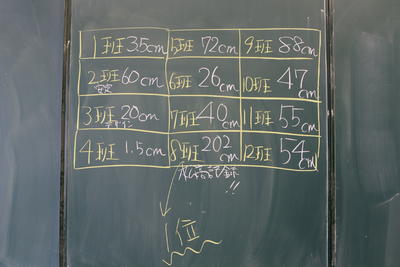 1班 35cm 5班 72cm 9班 88cm
2班 60cm 6班 26cm 10班 47cm
安定
3班 20cm 7班 40cm 11班 55cm
デザイン
4班 1.5cm 8班 202cm 12班 54cm
記録!!
1位